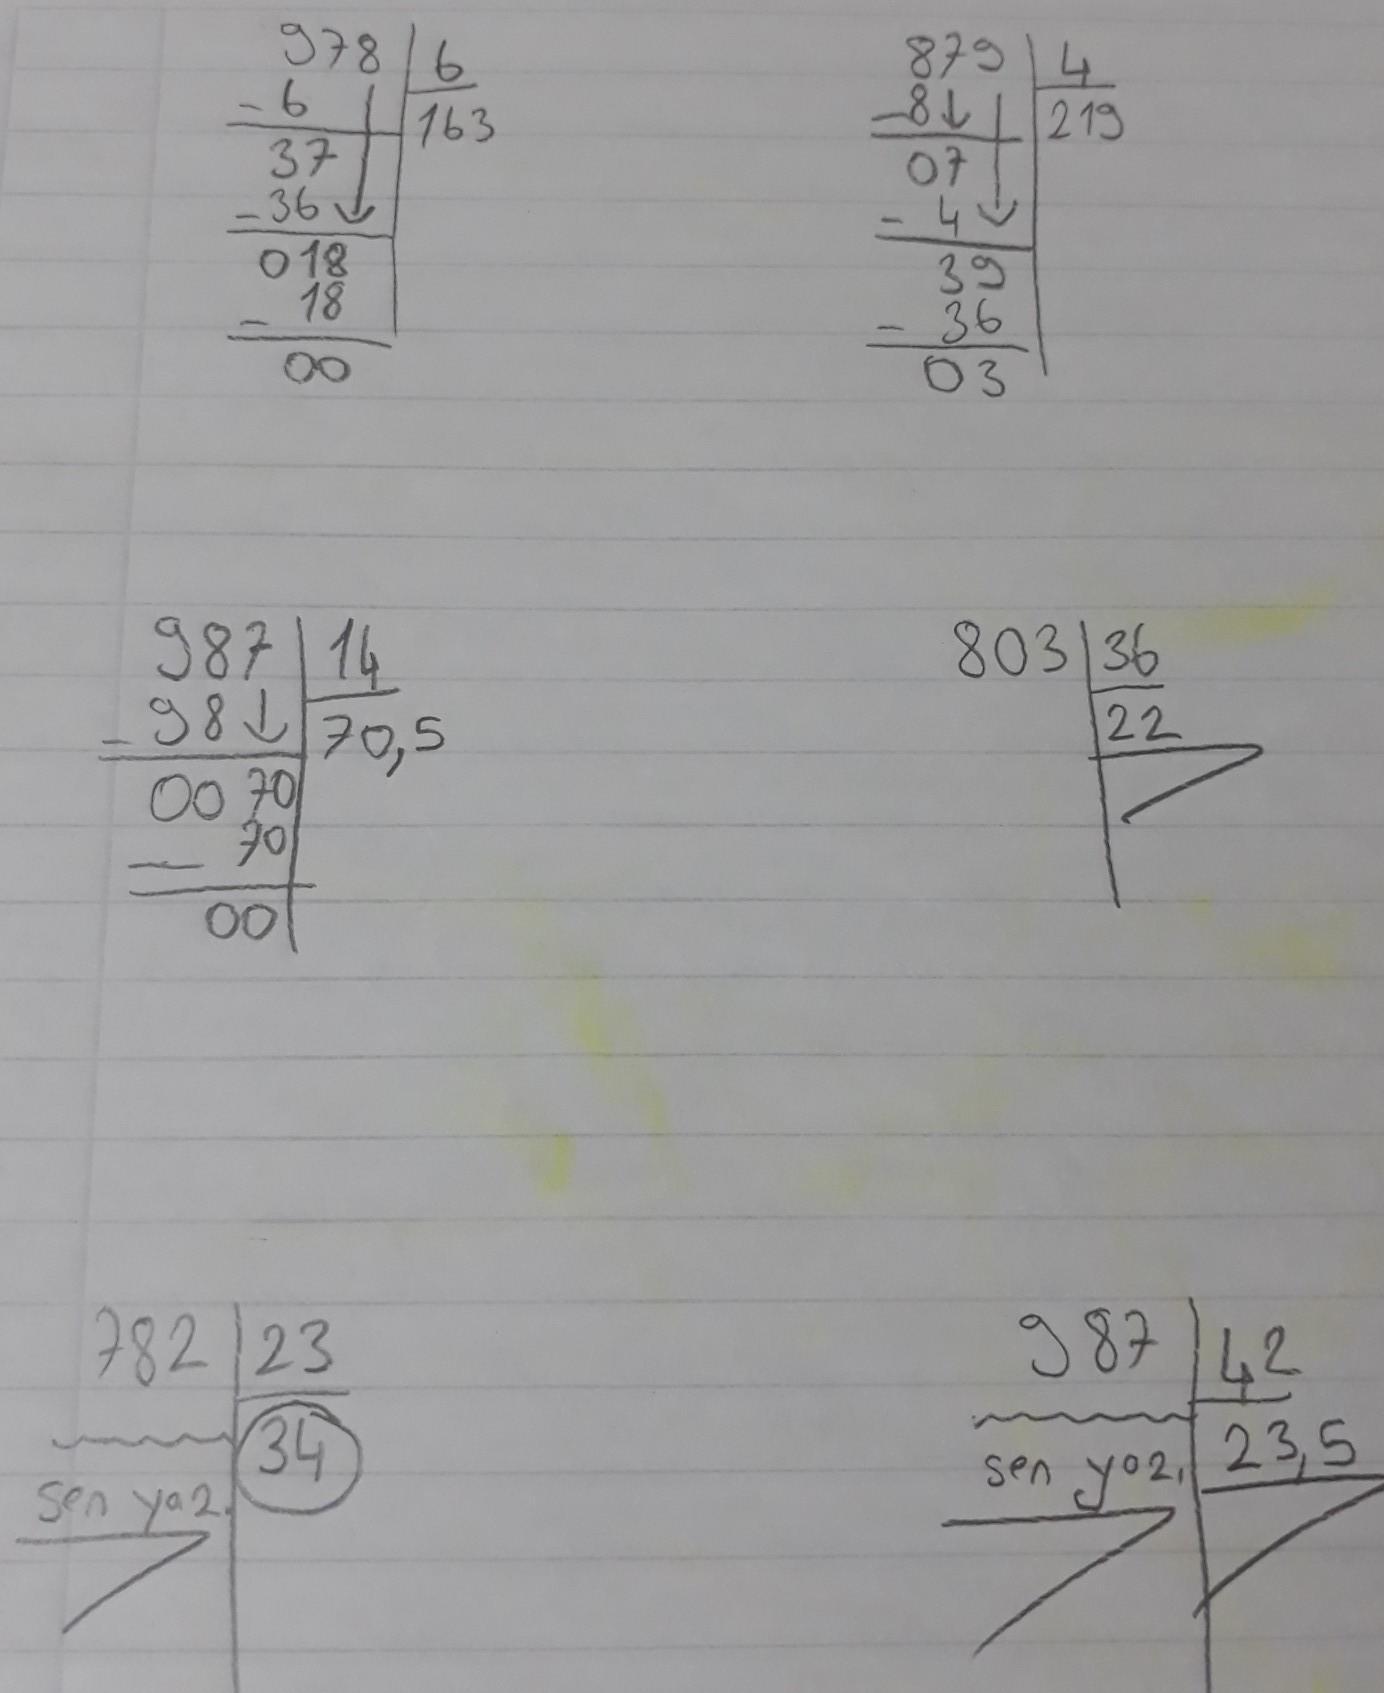 978 6
- 6 163
37
- 36
018
- 18
00
879 4
- 8 219
07
- 4
39
- 36
03
987 14
- 98 70,5
00 70
- 70
00
803 36
22
782 23
34
sen yaz.
987 42
23,5
sen yaz.